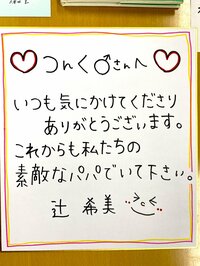 ♡つんく♂さんへ♡
いつも気にかけてくださり
ありがとうございます。
これからも私たちの
素敵なパパでいて下さい。
辻 希美